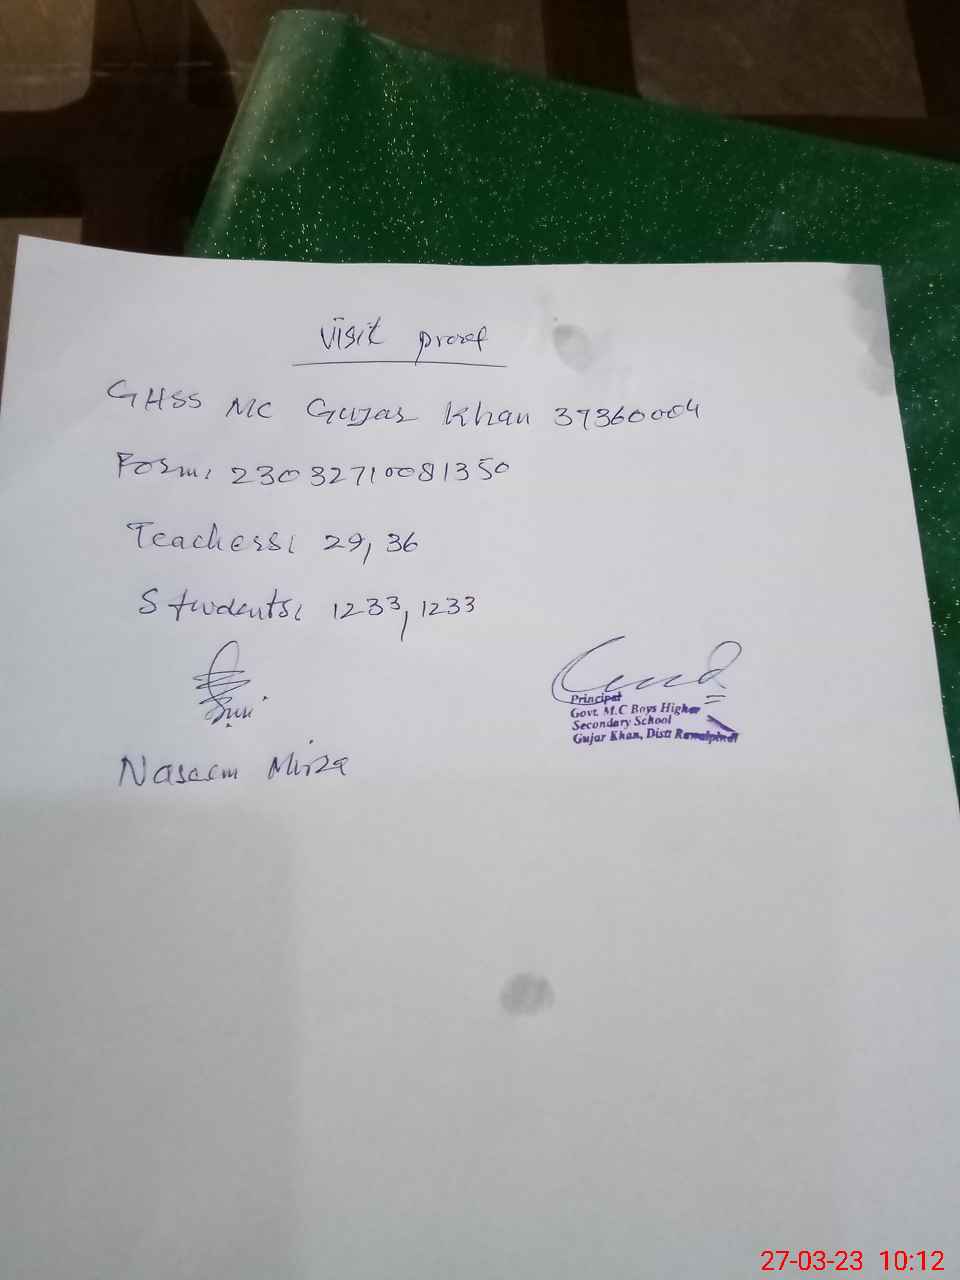 Visit proof
GHSS MC Gujar Khan 37360004
Form: 23032710081350
Teachers: 29, 36
Students: 1233, 1233
Naseem Mirza
Principal
Govt. M.C Boys Higher
Secondary School
Gujar Khan, Distt Rawalpindi
27-03-23 10:12